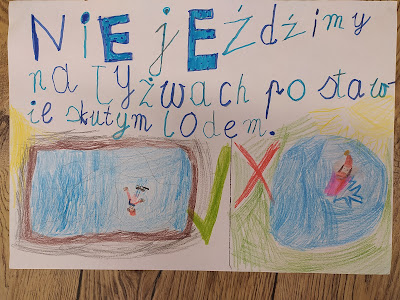 NIE jEździmy
na łyżwach po staw-
ie skutym lodem.